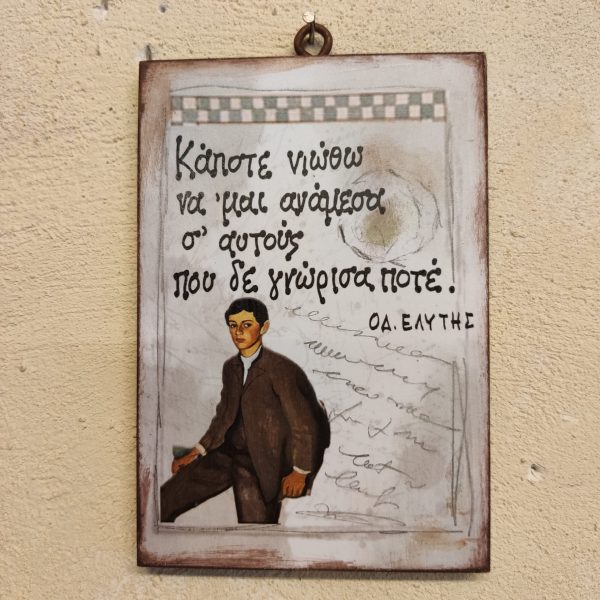 Κάποτε νιώθω
να 'μαι ανάμεσα
σ' αυτούς
που δε γνώρισα ποτέ.
ΟΔ. ΕΛΥΤΗΣ